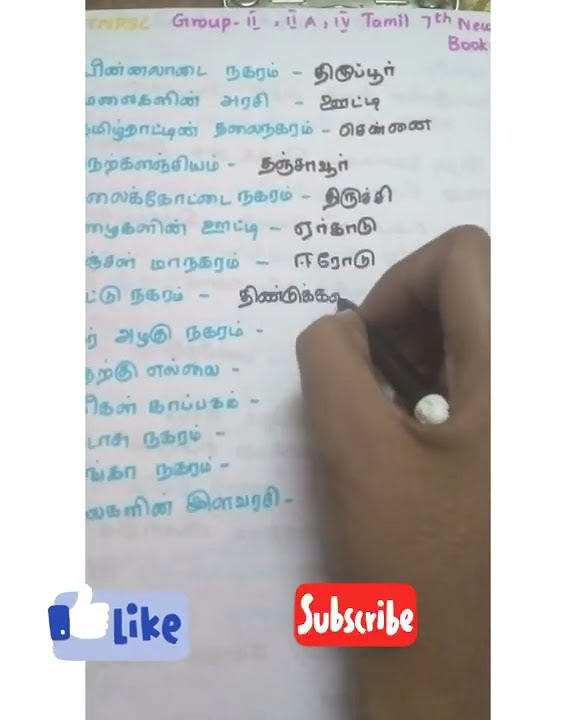 TNPSC Group-II, II A, IV Tamil 7th New
Book
பின்னலாடை நகரம் - திருப்பூர்
மலைகளின் அரசி - ஊட்டி
தமிழ்நாட்டின் தலைநகரம் - சென்னை
நெற்களஞ்சியம் - தஞ்சாவூர்
லைக்கோட்டை நகரம் - திருச்சி
ழைகளின் ஊட்டி - ஏர்காடு
ஞ்சள் மாநகரம் - ஈரோடு
ட்டு நகரம் - திண்டுக்க
அழகு நகரம் -
தெற்கு எல்லை -
காப்பகம் -
டாசு நகரம் -
ங்கா நகரம் -
லைகளின் இளவரசி -
Like
Subscribe